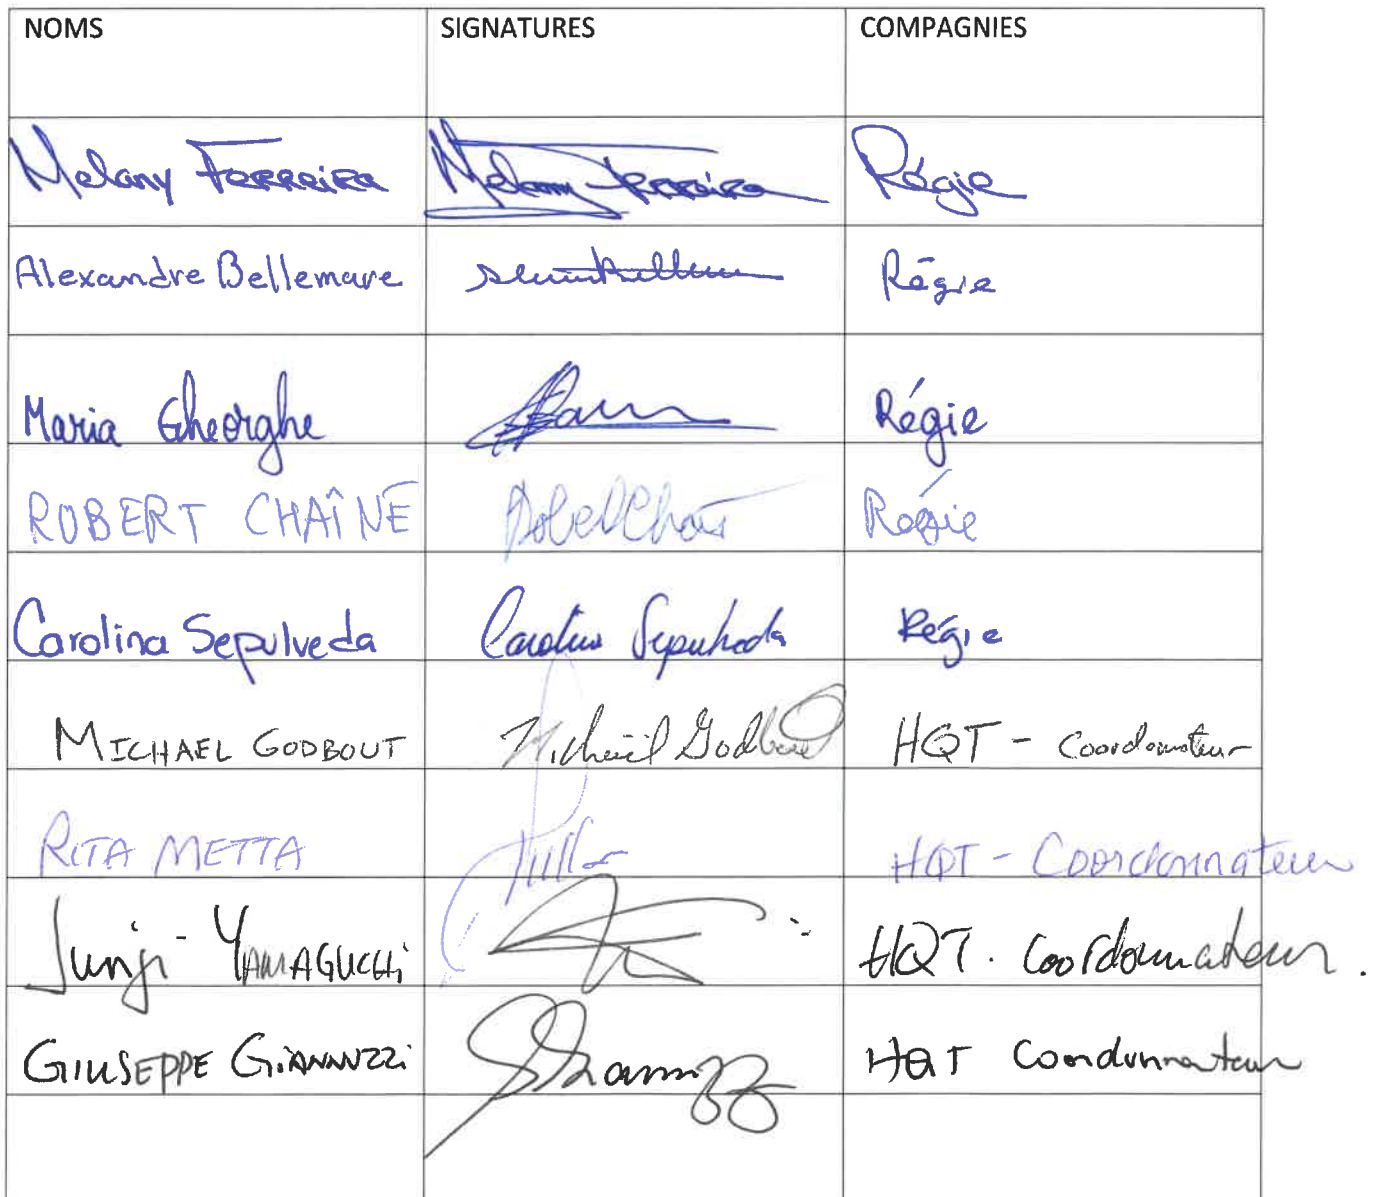 NOMS SIGNATURES COMPAGNIES
Melany Ferreira Melany Ferreira Régie
Alexandre Bellemare Régie
Maria Gheorghe Régie
ROBERT CHAÎNÉ Régie
Carolina Sepulveda Carolina Sepulveda Régie
MICHAEL GODBOUT Michael Godbout HQT - Coordonnateur
RITA METTA HQT - Coordonnateur
Junji YAMAGUCHi HQT. Coordonnateur.
GIUSEPPE GIANNUZZi HQT Coordonnateur